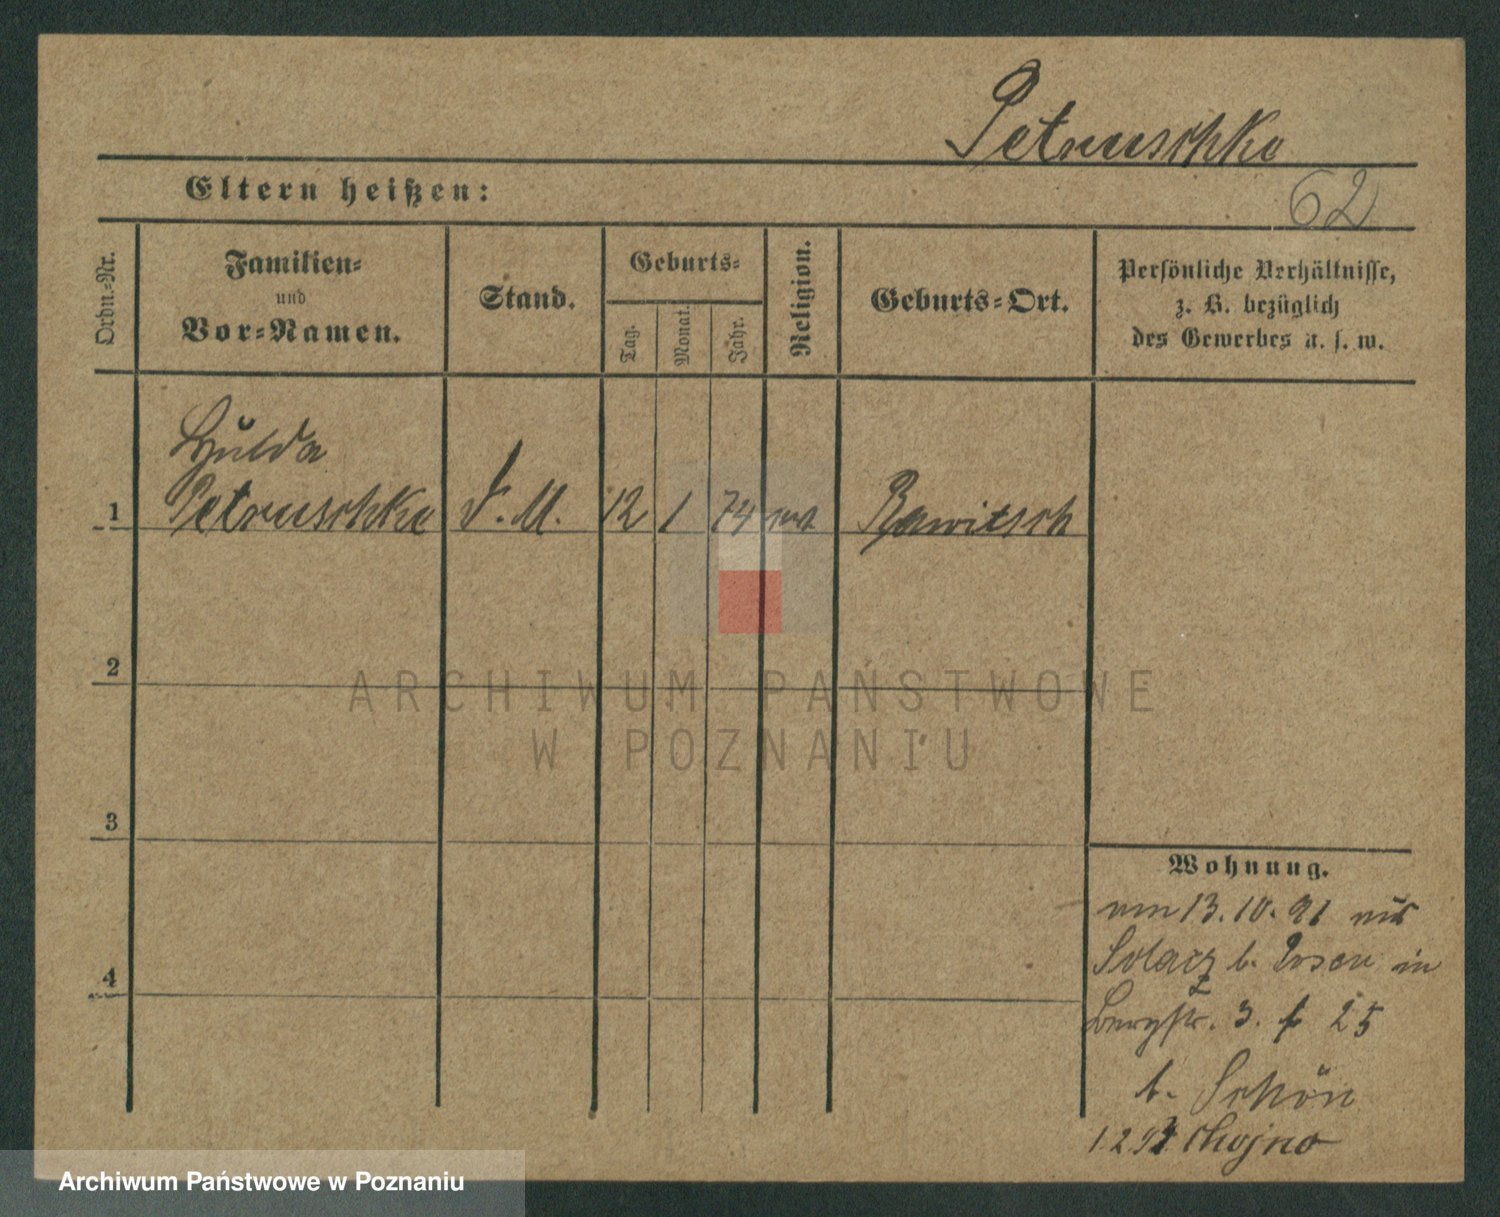 Petruschke
Eltern heißen:
62
Ordn.-Nr.
Familien-
und
Vor-Namen.
Stand.
Geburts-
Tag.
Monat.
Jahr.
Religion.
Geburts-Ort.
Persönliche Verhältnisse,
z. B. bezüglich
des Gewerbes u. s. w.
Hulda
1 Petruschke d. M. 12 1 74 Rawitsch
2
ARCHIWUM PAŃSTWOWE
W POZNANIU
3
Wohnung.
am 13.10.91 aus
Solacz b. Posen in
4
Bergstr. 3. 25
b. Schön
1 2 92 Chojno
Archiwum Państwowe w Poznaniu